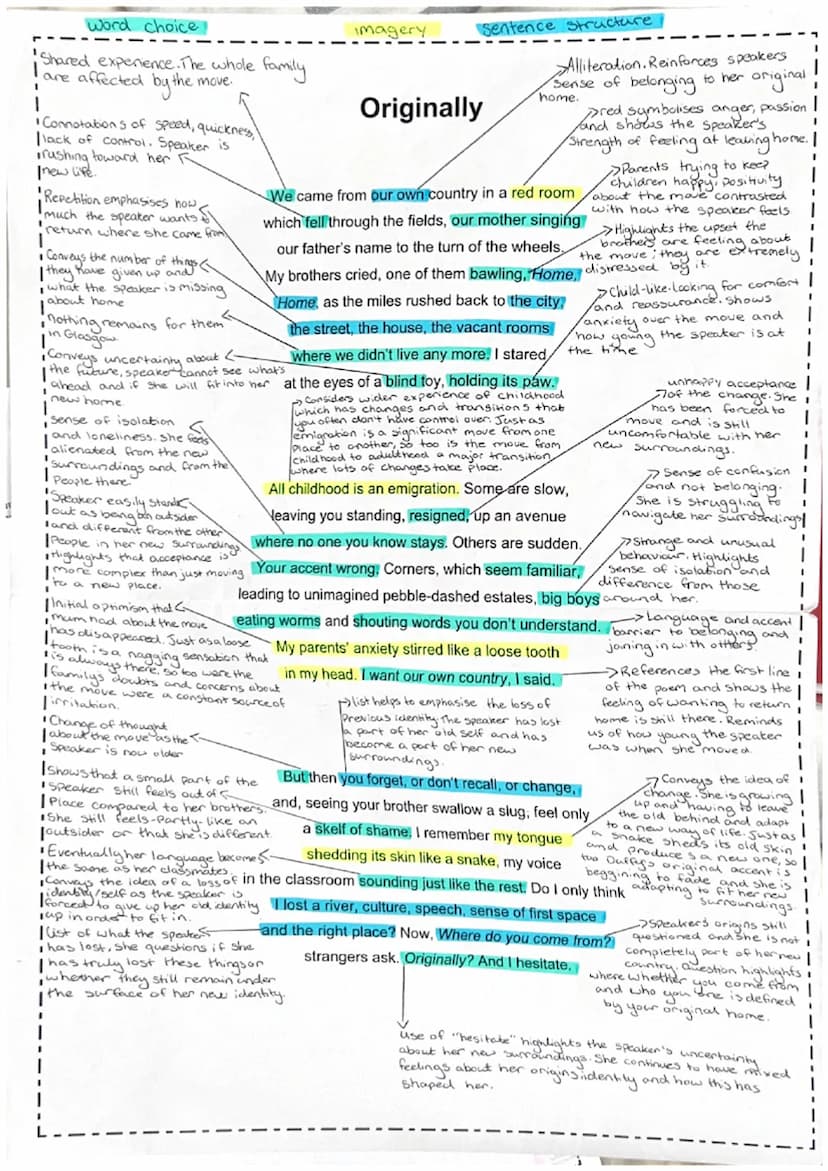 word choice
imagery
sentence structure
Shared experience. The whole family
are affected by the move.
Connotations of speed, quickness,
lack of control. Speaker is
rushing toward her
new life.
Repetition emphasises how
much the speaker wants to
return where she came from
Conveys the number of things
they have given up and
what the speaker is missing
about home
Nothing remains for them
in Glasgow
Conveys uncertainty about
the future, speaker cannot see what's
ahead and if she will fit into her
new home.
sense of isolation
and loneliness. She feels
alienated from the new
surroundings and from the
people there
Speaker easily stands
out as being an outsider
and different from the other
people in her new surroundings.
Highlights that acceptance is
more complex than just moving
to a new place.
Initial optimism that
mum had about the move
has disappeared. Just as a loose
tooth is a nagging sensation that
is always there, so too were the
family's doubts and concerns about
the move were a constant source of
irritation.
Change of thought
about the move as the
speaker is now older
Shows that a small part of the
speaker still feels out of
place compared to her brothers.
She still feels-Partly-like an
outsider or that she is different.
Eventually her language becomes
the same as her classmates.
Conveys the idea of a loss of
identity/self as the speaker is
forced to give up her old identity
up in order to fit in.
List of what the speaker
has lost, she questions if she
has truly lost these things or
whether they still remain under
the surface of her new identity.
Originally
We came from our own country in a red room
which fell through the fields, our mother singing
our father's name to the turn of the wheels.
My brothers cried, one of them bawling, Home,
Home, as the miles rushed back to the city,
the street, the house, the vacant rooms
where we didn't live any more. I stared
at the eyes of a blind toy, holding its paw.
Considers wider experience of childhood
which has changes and transitions that
you often don't have control over. Just as
emigration is a significant move from one
place to another, so too is the move from
childhood to adulthood a major transition
where lots of changes take place.
All childhood is an emigration. Some are slow,
leaving you standing, resigned, up an avenue
where no one you know stays. Others are sudden.
Your accent wrong. Corners, which seem familiar,
leading to unimagined pebble-dashed estates, big boys
eating worms and shouting words you don't understand.
My parents' anxiety stirred like a loose tooth
in my head. I want our own country, I said.
list helps to emphasise the loss of
previous identity. The speaker has lost
a part of her old self and has
become a part of her new
surroundings.
But then you forget, or don't recall, or change,
and, seeing your brother swallow a slug, feel only
a skelf of shame. I remember my tongue
shedding its skin like a snake, my voice
in the classroom sounding just like the rest. Do I only think
I lost a river, culture, speech, sense of first space
and the right place? Now, Where do you come from?
strangers ask. Originally? And I hesitate.
Use of "hesitate" highlights the speaker's uncertainty
about her new surroundings. She continues to have mixed
feelings about her origins, identity and how this has
shaped her.
Alliteration. Reinforces speakers
sense of belonging to her original
home.
red symbolises anger, passion
and shows the speaker's
strength of feeling at leaving home.
Parents trying to keep
children happy, positivity
about the move contrasted
with how the speaker feels
Highlights the upset the
brothers are feeling about
the move; they are extremely
distressed by it.
Child-like-looking for comfort
and reassurance. shows
anxiety over the move and
how young the speaker is at
the time
unhappy acceptance
of the change. She
has been forced to
move and is still
uncomfortable with her
new surroundings.
Sense of confusion
and not belonging.
She is struggling to
navigate her surroundings
Strange and unusual
behaviour. Highlights
sense of isolation and
difference from those
around her.
Language and accent
barrier to belonging and
joining in with others.
References the first line
of the poem and shows the
feeling of wanting to return
home is still there. Reminds
us of how young the speaker
was when she moved.
Conveys the idea of
change. She is growing
up and having to leave
the old behind and adapt
to a new way of life. Just as
a snake sheds its old skin
and produces a new one, so
too Duffy's original accent is
beggining to fade and she is
adapting to fit her new
surroundings.
Speaker's origins still
questioned and she is not
completely part of her new
country. Question highlights
where whether you come from
and who you are is defined
by your original home.